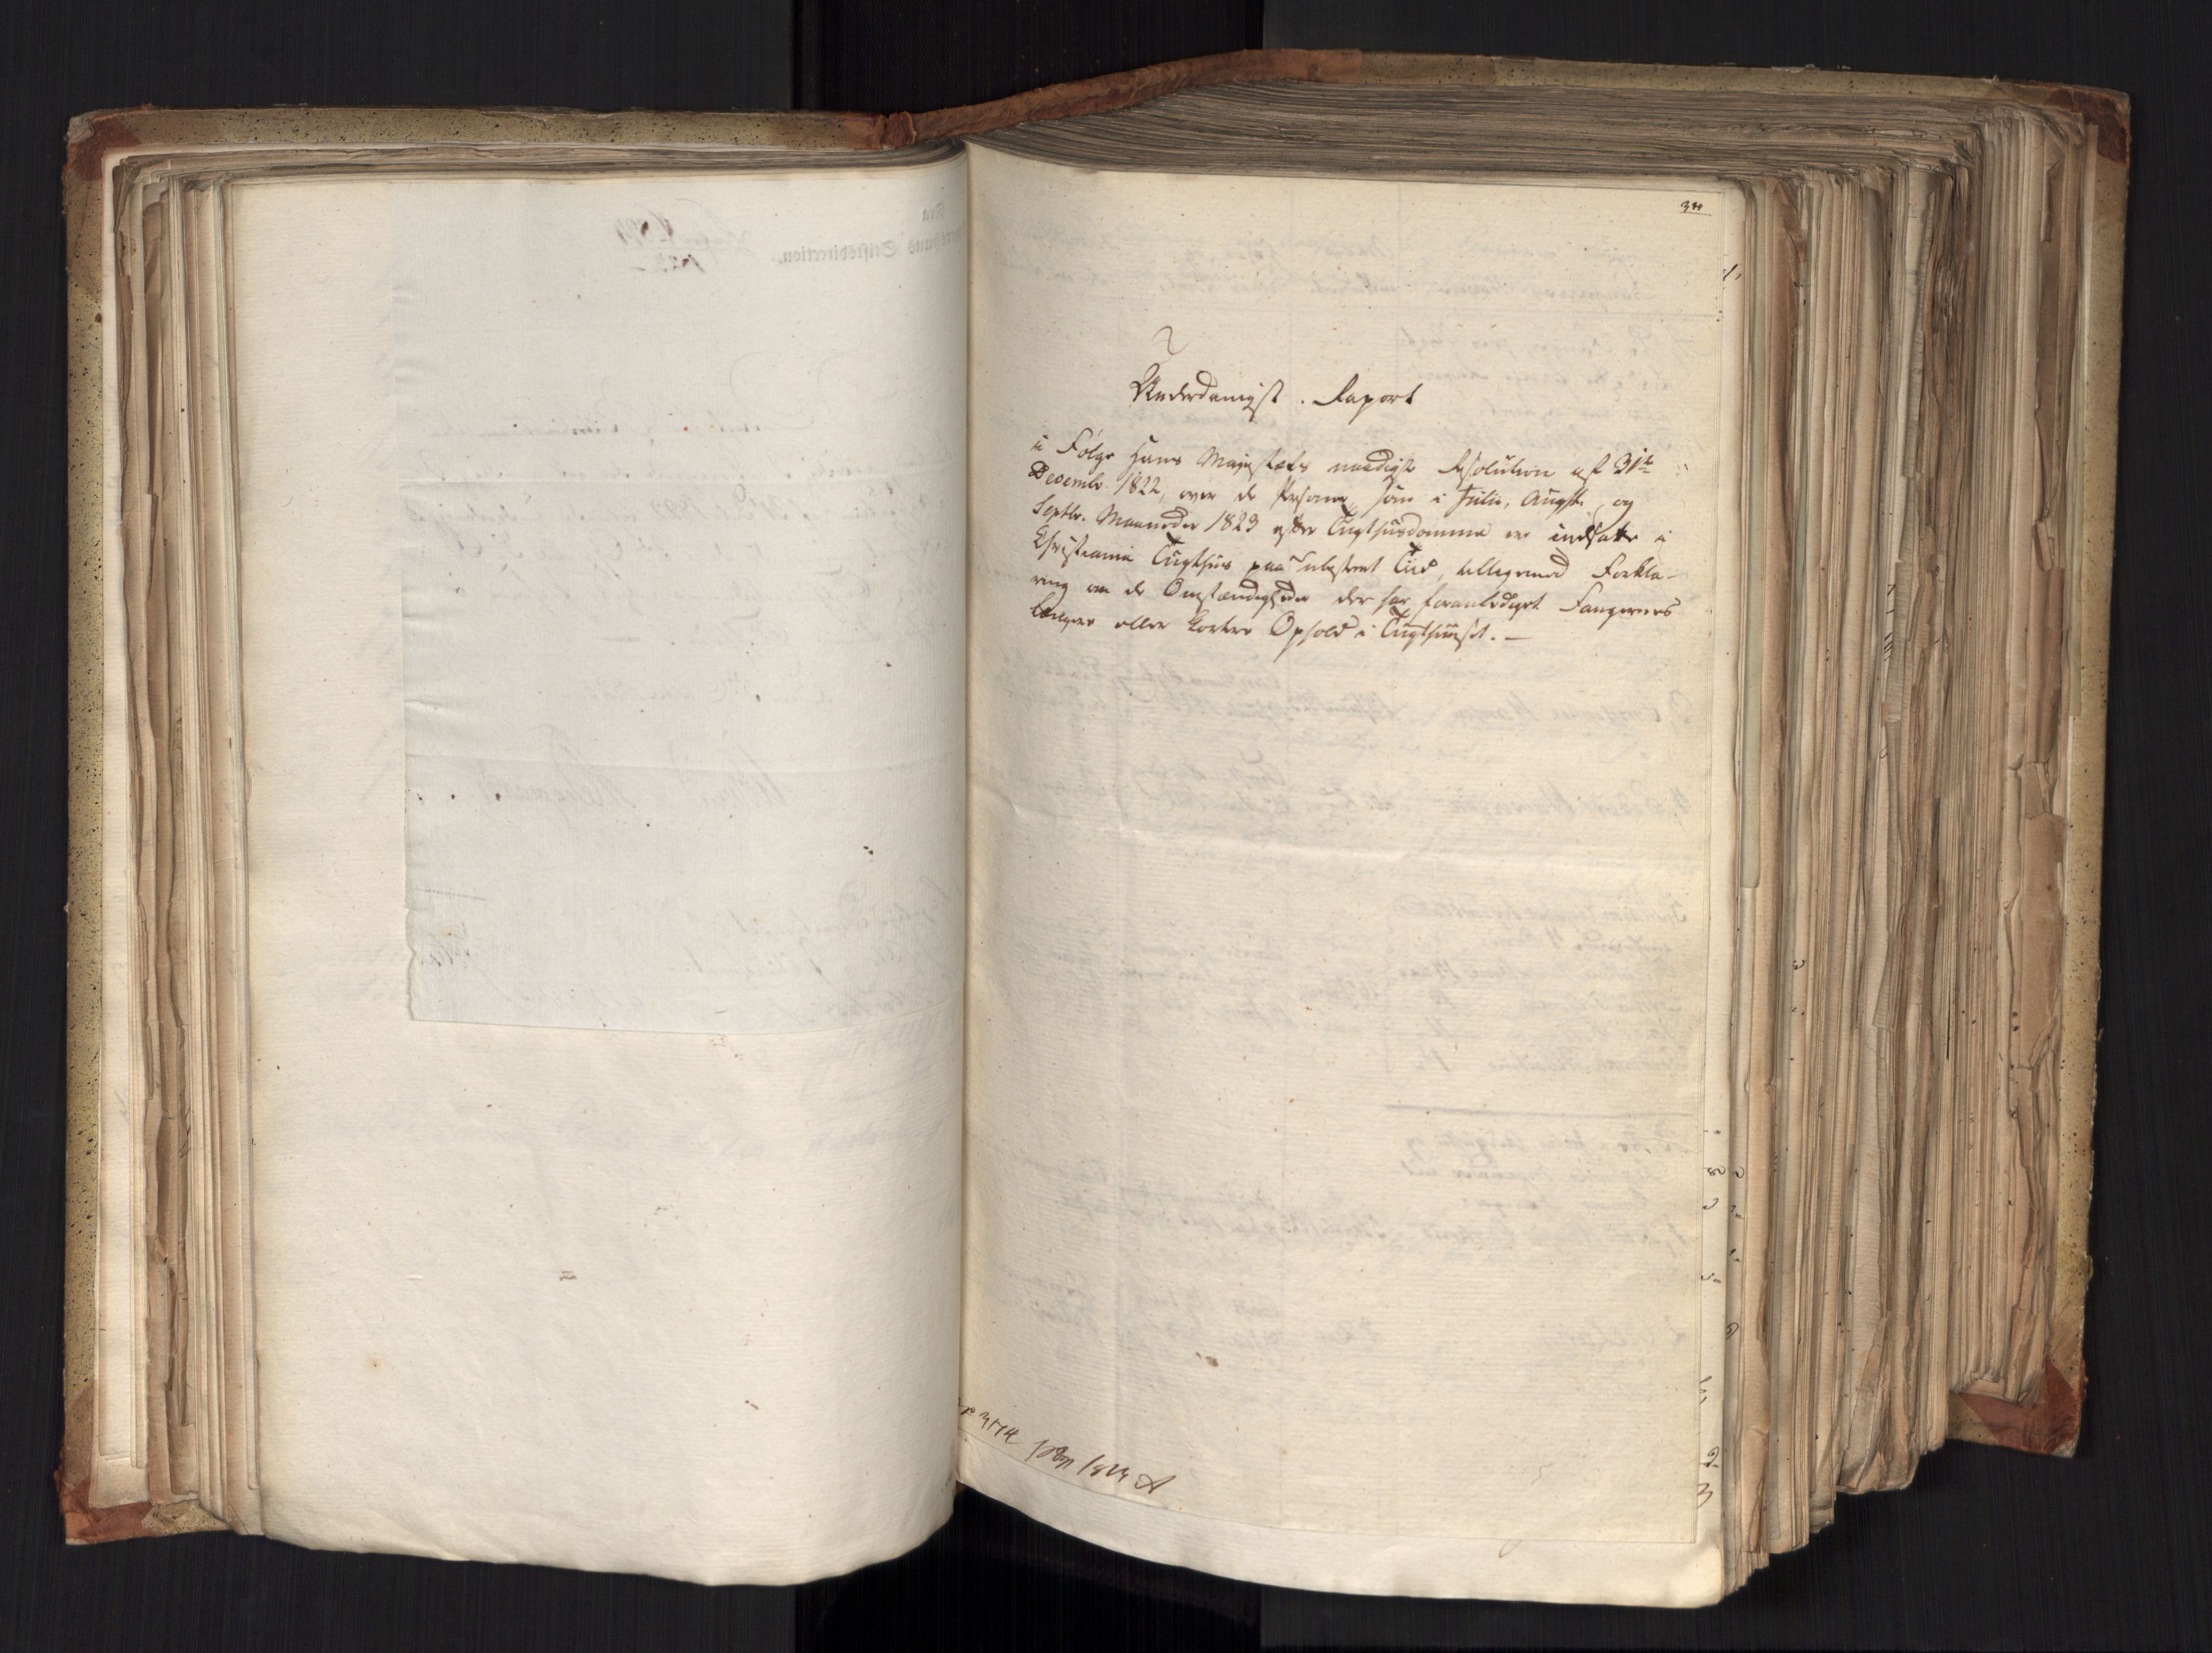 Underdanigst. Raport
i Følge Hans Majestæts naadigste Resolution af 31te
Decembr. 1822, over de Personer, som i Julii, Augst. og
Septbr. Maaneder 1823 efter Tugthusdomme ere indsatte i
Christiania Tugthuus paa ubestemt Tiid, tilligemed Forkla-
ring om de Omstændigheder der har foranlediget Fangernes
længere eller kortere Ophold i Tugthuuset. —